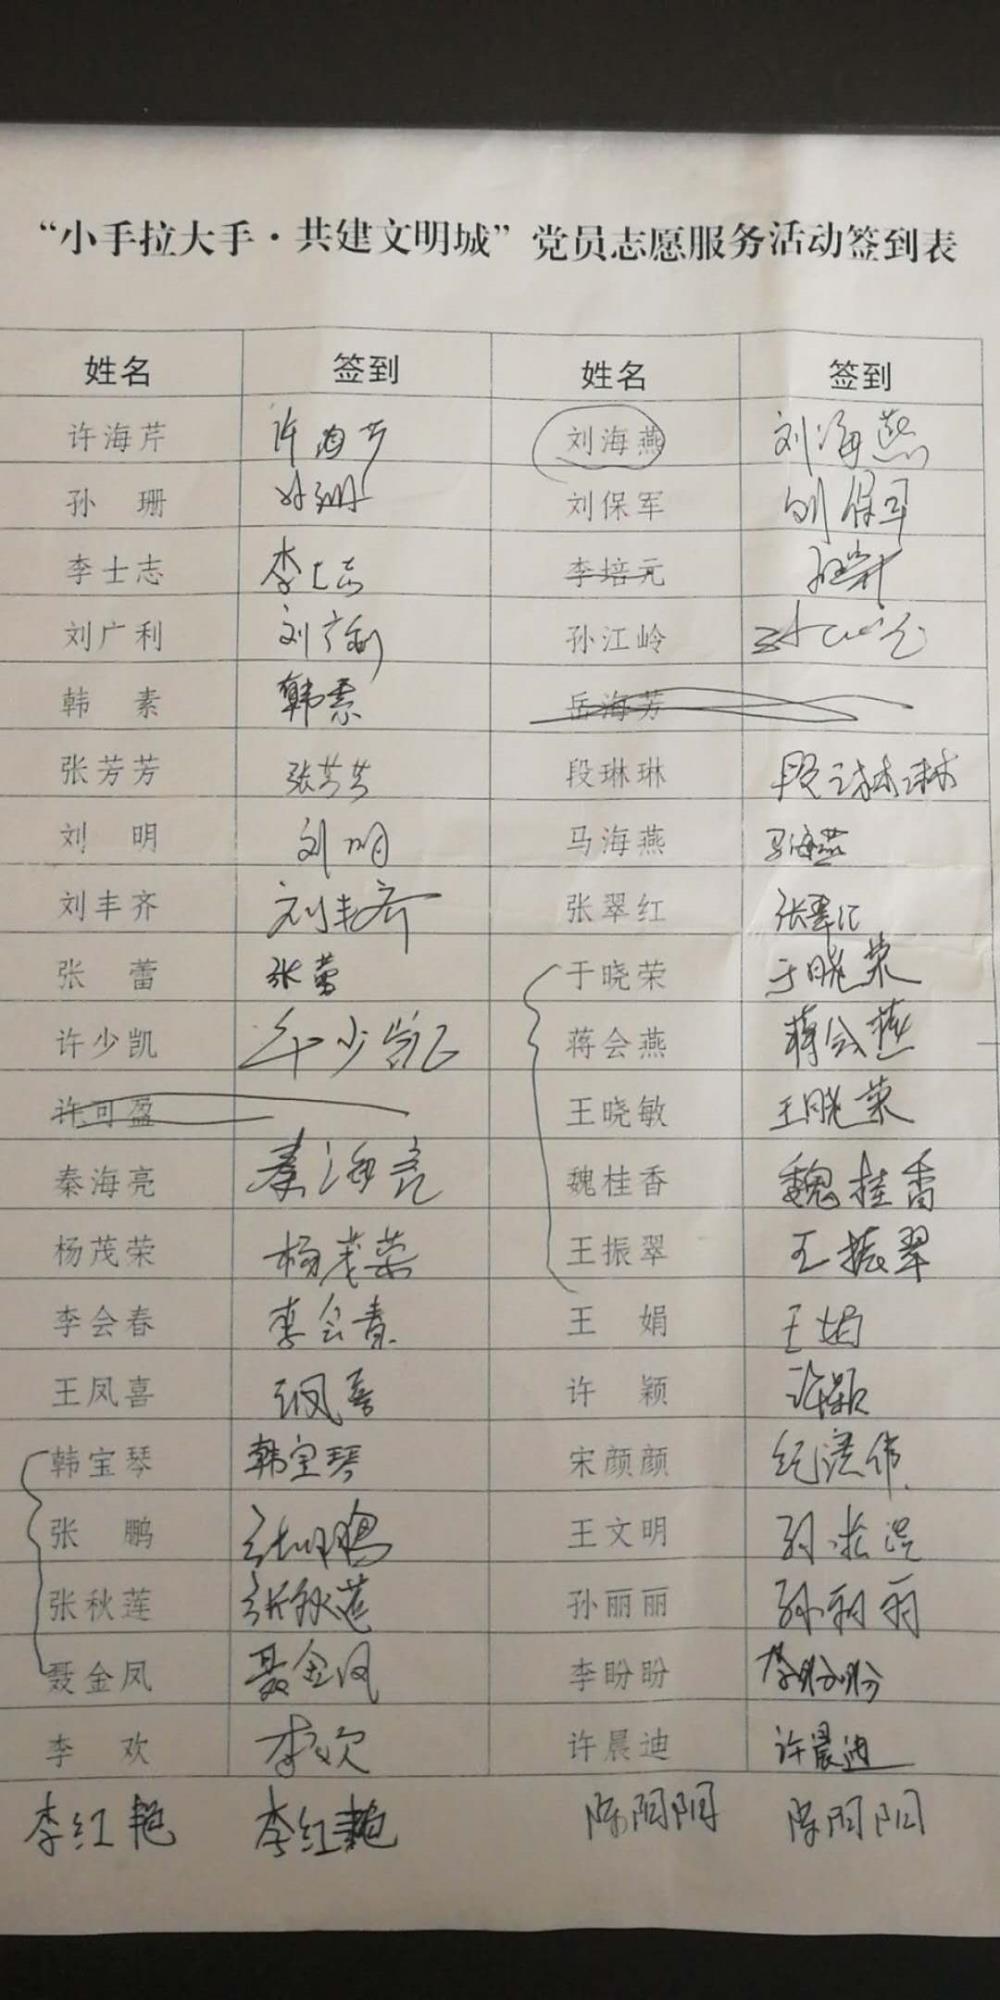 “小手拉大手·共建文明城”党员志愿服务活动签到表
姓名 签到 姓名 签到
许海芹 许海芹 刘海燕 刘海燕
孙 珊 孙珊 刘保军 刘保军
李士志 李士志 李培元
刘广利 刘广利 孙江岭
韩 素 韩素 岳海芳
张芳芳 张芳芳 段琳琳 段琳琳
刘 明 刘明 马海燕 马海燕
刘丰齐 刘丰齐 张翠红 张翠红
张 蕾 张蕾 于晓荣 于晓荣
许少凯 许少凯 蒋会燕 蒋会燕
许可盈 王晓敏 王晓荣
秦海亮 秦海亮 魏桂香 魏桂香
杨茂荣 杨茂荣 王振翠 王振翠
李会春 李会春 王 娟 王娟
王凤喜 王凤喜 许 颖 许颖
韩宝琴 韩宝琴 宋颜颜
张 鹏 张鹏 王文明
张秋莲 张秋莲 孙丽丽 孙丽丽
聂金凤 聂金凤 李盼盼 李盼盼
李 欢 李欢 许晨迪 许晨迪
李红艳 李红艳 陈阳阳 陈阳阳